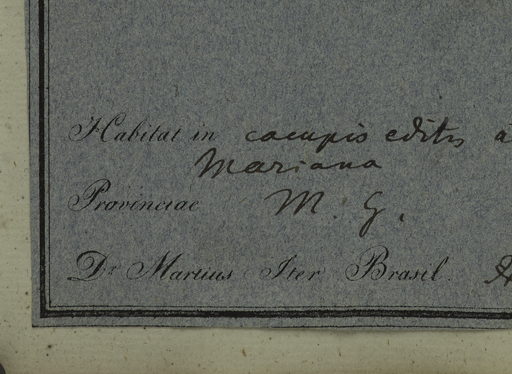 Habitat in campis editis a
Mariana
Provinciae M. G.
Dr Martius Iter Brasil.